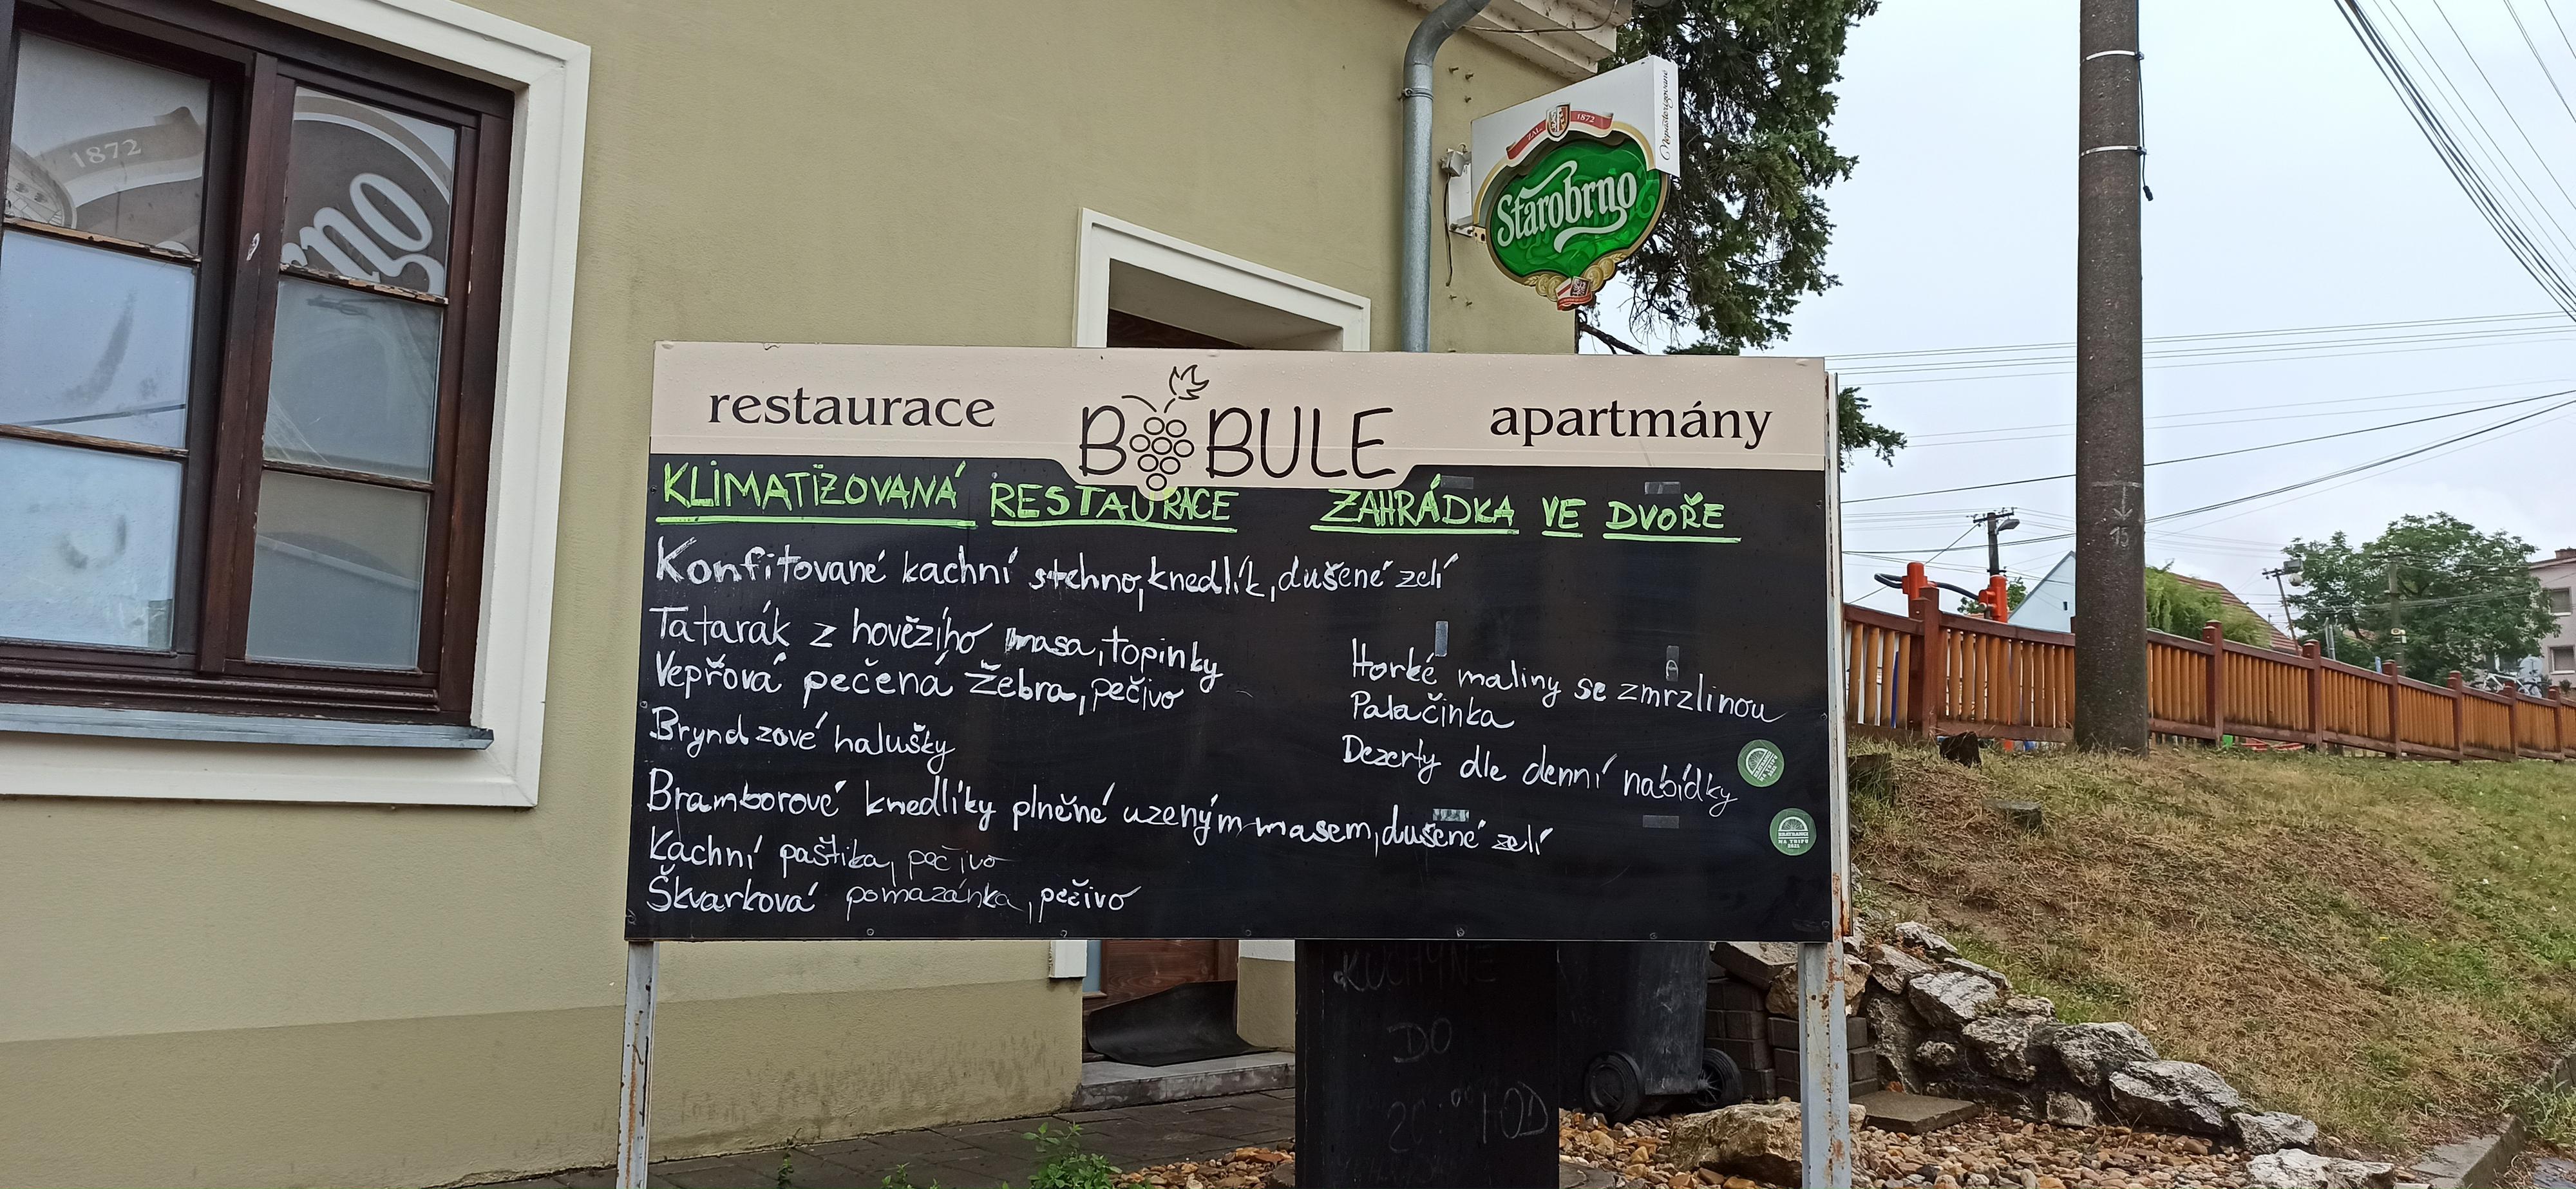 1872
rno
ZAL. 1872
Nepasterizované
Starobrno
restaurace
BOBULE
apartmány
KLIMATIZOVANÁ RESTAURACE ZAHRÁDKA VE DVOŘE
Konfitované kachní stehno, knedlík, dušené zelí
Tatarák z hovězího masa, topinky
Vepřová pečená žebra, pečivo
Bryndzové halušky
Bramborové knedlíky plněné uzeným masem, dušené zelí
Kachní paštika, pečivo
Škvarková pomazánka, pečivo
Horké maliny se zmrzlinou
Palačinka
Dezerty dle denní nabídky
NA TRIPU
KUCHYNE
DO
20:00 HOD
15